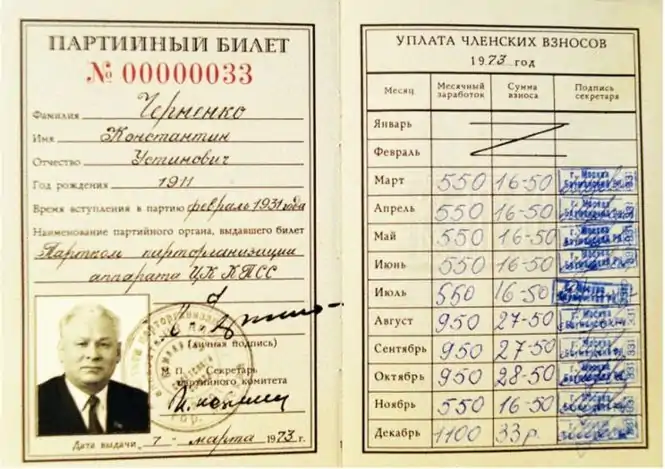 ПАРТИЙНЫЙ БИЛЕТ
№ 00000033
Фамилия Черненко
Имя Константин
Отчество Устинович
Год рождения 1911
Время вступления в партию февраль 1931 года
Наименование партийного органа, выдавшего билет
Партком парторганизации
аппарата ЦК КПСС
(личная подпись)
М. П. Секретарь
партийного комитета
Дата выдачи 7 - марта 1973 г.
УПЛАТА ЧЛЕНСКИХ ВЗНОСОВ
1973 год
Месяц Месячный заработок Сумма взноса Подпись секретаря
Январь
Февраль
Март 550 16-50 г. Москва
Апрель 550 16-50
Май 550 16-50 г. Москва
Июнь 550 16-50
Июль 550 16-50
Август 950 27-50
Сентябрь 950 27-50
Октябрь 950 28-50
Ноябрь 550 16-50
Декабрь 1100 33 р.